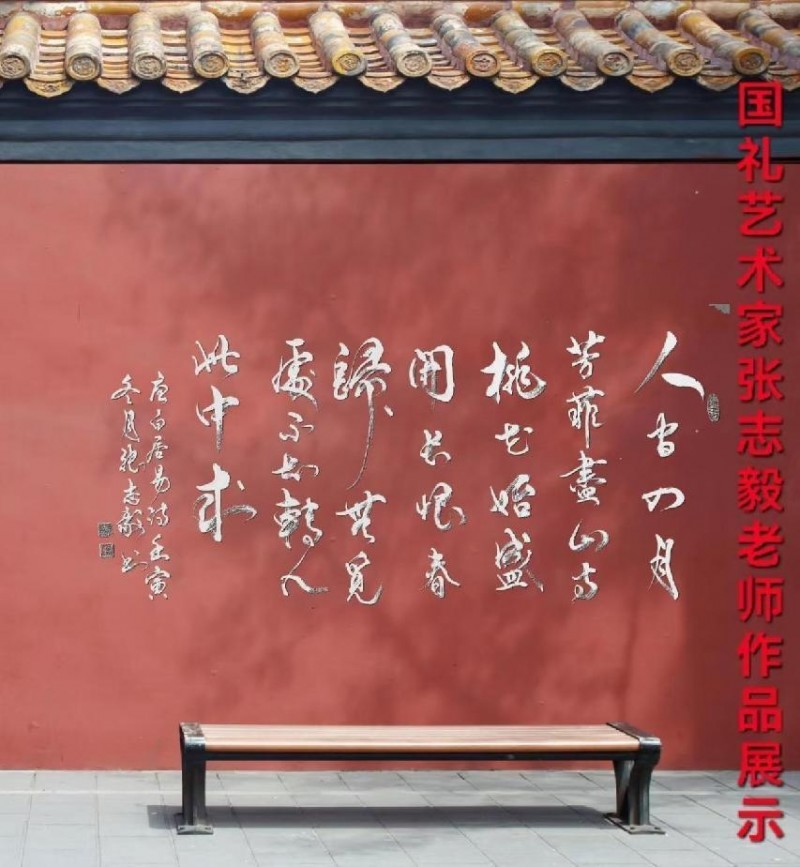 国礼艺术家张志毅老师作品展示
人间四月
芳菲盡山寺
桃花始盛
開长恨春
歸無覓
處不知轉入
此中来
唐白居易诗壬寅
冬月张志毅书